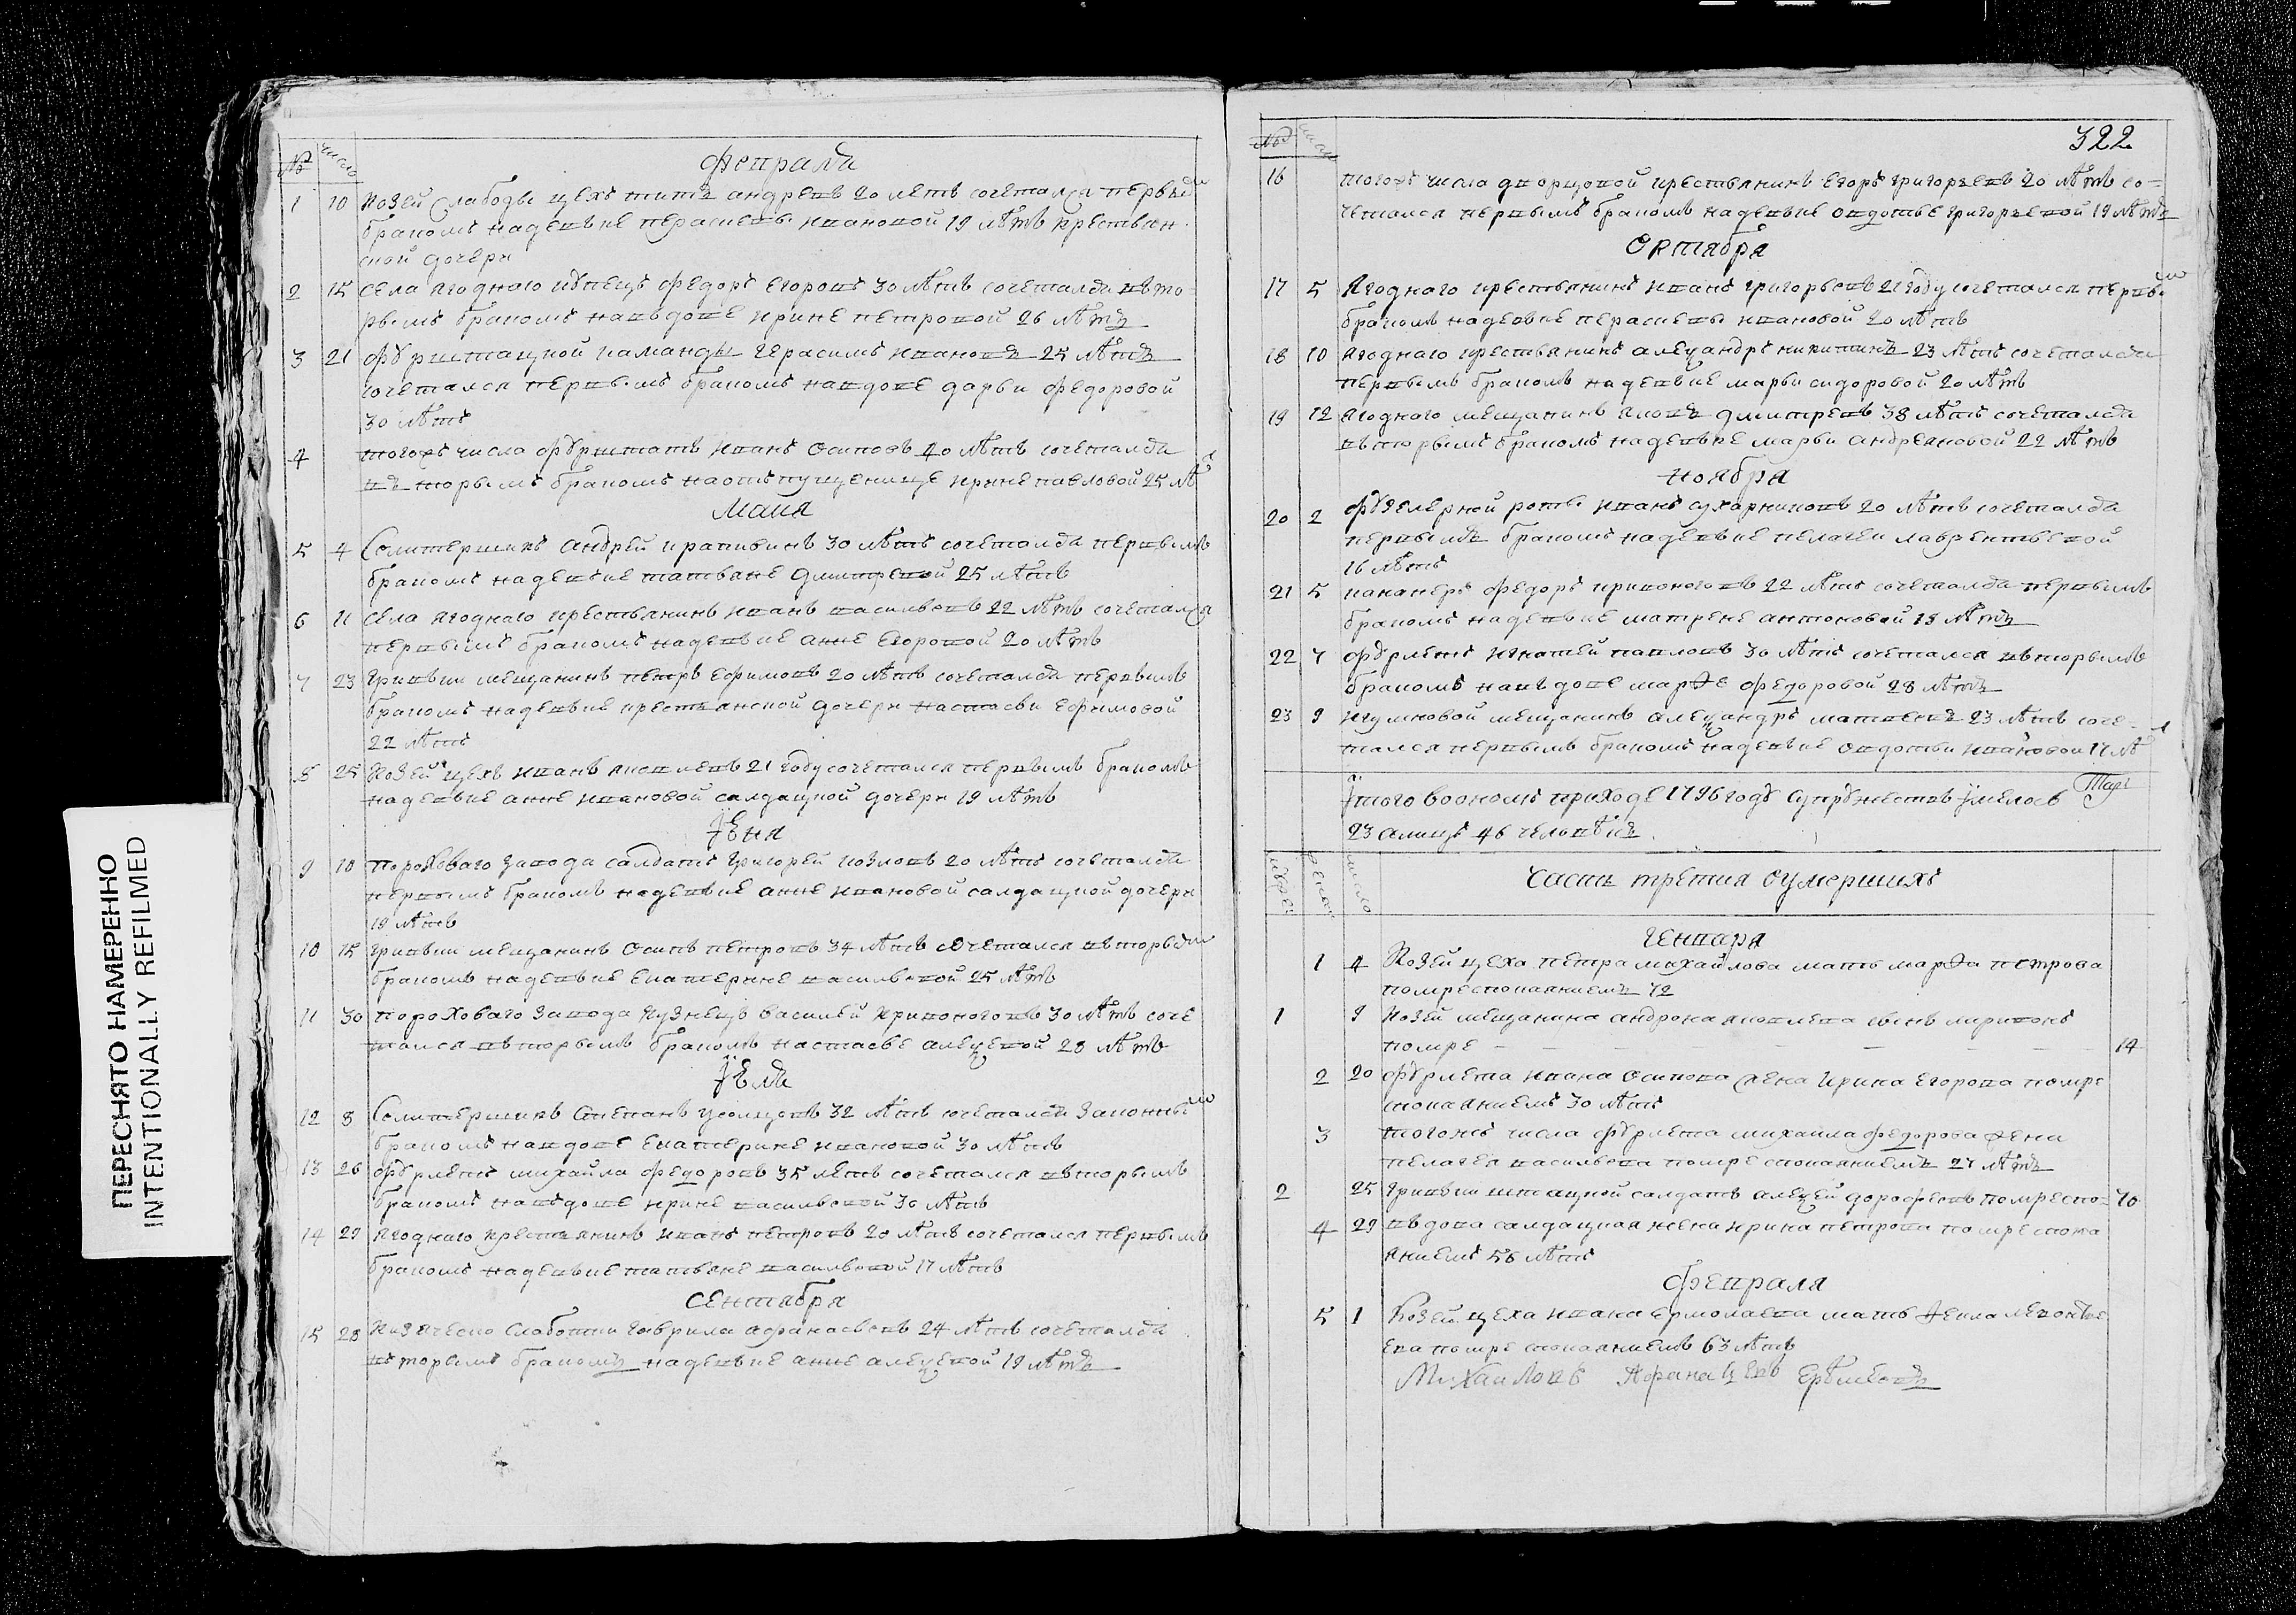 № число
февраля
1 10 козей слабоды цехъ титъ андреевъ 20 летъ сочетался первым
бракомъ надевъке парасковье ивановой 19 лѣтъ крестьян
ской дочери
2 15 села ягоднаго купецъ федоръ егоровъ 30 лѣтъ сочетался вто
рымъ бракомъ навдове ирине петровой 26 лѣтъ
3 21 фурштацкой команды герасимъ ивановъ 25 лѣтъ
сочетался первымъ бракомъ навдове дарьи федоровой
30 лѣтъ
4 тогожъ числа фурштатъ иванъ осиповъ 40 лѣтъ сочетался
въ торымъ бракомъ наотъпущенице ирине павловой 25 лѣ
маия
5 4 Солитерщикъ андрей крапивинъ 30 лѣтъ сочетался первымъ
бракомъ надевъке татьяне дмитревой 25 лѣтъ
6 11 села ягоднаго крестьянинъ иванъ васильевъ 22 лѣтъ сочетался
первымъ бракомъ надевъке анне егоровой 20 лѣтъ
7 23 гривъки мещанинъ петръ ефимовъ 20 лѣтъ сочетался первымъ
бракомъ надевъке крестьянской дочери настасьи ефимовой
22 лѣтъ
8 25 козей цехъ иванъ яковлевъ 21 году сочетался первымъ бракомъ
надевъке анне ивановой салдацкой дочери 19 лѣтъ
іюня
9 10 пороховаго завода салдатъ григорей козловъ 20 лѣтъ сочетался
первымъ бракомъ надевъке анне ивановой салдацкой дочери
19 лѣтъ
10 15 гривъки мещанинъ осипъ петровъ 34 лѣтъ сочетался вторым
бракомъ надевъке екатерине васильевой 25 лѣтъ
11 30 пороховаго завода кузнецъ василей кривоноговъ 30 лѣтъ соче
тался вторымъ бракомъ настасье алецевой 28 лѣтъ
іюля
12 8 Солитерщикъ степанъ усолцовъ 32 лѣтъ сочетался законны
бракомъ навдове екатерине ивановой 30 лѣтъ
13 26 фурлетъ михайла федоровъ 35 летъ сочетался вторымъ
бракомъ навъдове ирине васильевой 30 лѣтъ
14 29 ягоднаго крестьянинъ иванъ петровъ 20 лѣтъ сочетался первымъ
бракомъ надевъке татьяне васильевой 17 лѣтъ
сентября
15 28 слаботки гаврила афанасьевъ 24 лѣтъ сочетался
въторымъ бракомъ надевъке анне алецевой 19 лѣтъ
322
16 тогожъ числа дворцовой крестьянинъ егоръ григорьевъ 20 лѣтъ со=
четался первымъ бракомъ надевъке овдотье григорьевой 19 лѣтъ
октября
17 5 ягоднаго крестьянинъ иванъ григорьевъ 21 году сочетался первы
бракомъ надевъке ивановой 20 лѣтъ
18 10 ягоднаго крестьянинъ алецандръ никитинъ 23 лѣтъ сочетался
первымъ бракомъ надевъке марьи сидоровой 20 лѣтъ
19 12 ягоднаго мещанинъ яковъ дмитревъ 38 лѣтъ сочетался
въторымъ бракомъ надевъке марьи андреяновой 22 лѣтъ
ноября
20 2 фузелерной роты иванъ сухарниковъ 20 лѣтъ сочетался
первымъ бракомъ надевъке пелагеи лаврентьевой
16 лѣтъ
21 5 кананеръ федоръ кривоноговъ 22 лѣтъ сочетался первымъ
бракомъ надевъке матрене антоновой 18 лѣтъ
22 7 фурлетъ игнатей павловъ 30 лѣтъ сочетался въторымъ
бракомъ навъдове марѳе федоровой 28 лѣтъ
23 9 игумновой мещанинъ алецандръ матвеевъ 23 лѣтъ соче=
тался первымъ бракомъ надевъке овдотьи ивановой 17 лѣ
Итого воономъ приходе 1796 году супружествъ имелосъ
23 алицъ 46 человѣкъ
Часть третия оумершихъ
генваря
1 4 Козей цеха петра михайлова мать марѳа петрова
помре спокаяниемъ 72
1 9 козей мещанина андрона яковлева сынъ ларивонъ
помре 14
2 20 фурлета ивана осипова жена ирина егорова помре
спокаяниемъ 30 лѣтъ
3 тогожъ числа фурлета михаила федорова жена
пелагея васильева помре спокаяниемъ 27 лѣтъ
2 25 гривъки штацкой салдатъ алецей дорофеевъ помре спо= 70
4 29 въдова салдацкая жена ирина петрова помре спока
яниемъ 56 лѣтъ
февраля
5 1 козей цеха ивана ермолаева мать ѳекла левонтье
ева помре спокаяниемъ 63 лѣтъ
Михаиловъ
ПЕРЕСНЯТО НАМЕРЕННО
INTENTIONALLY REFILMED